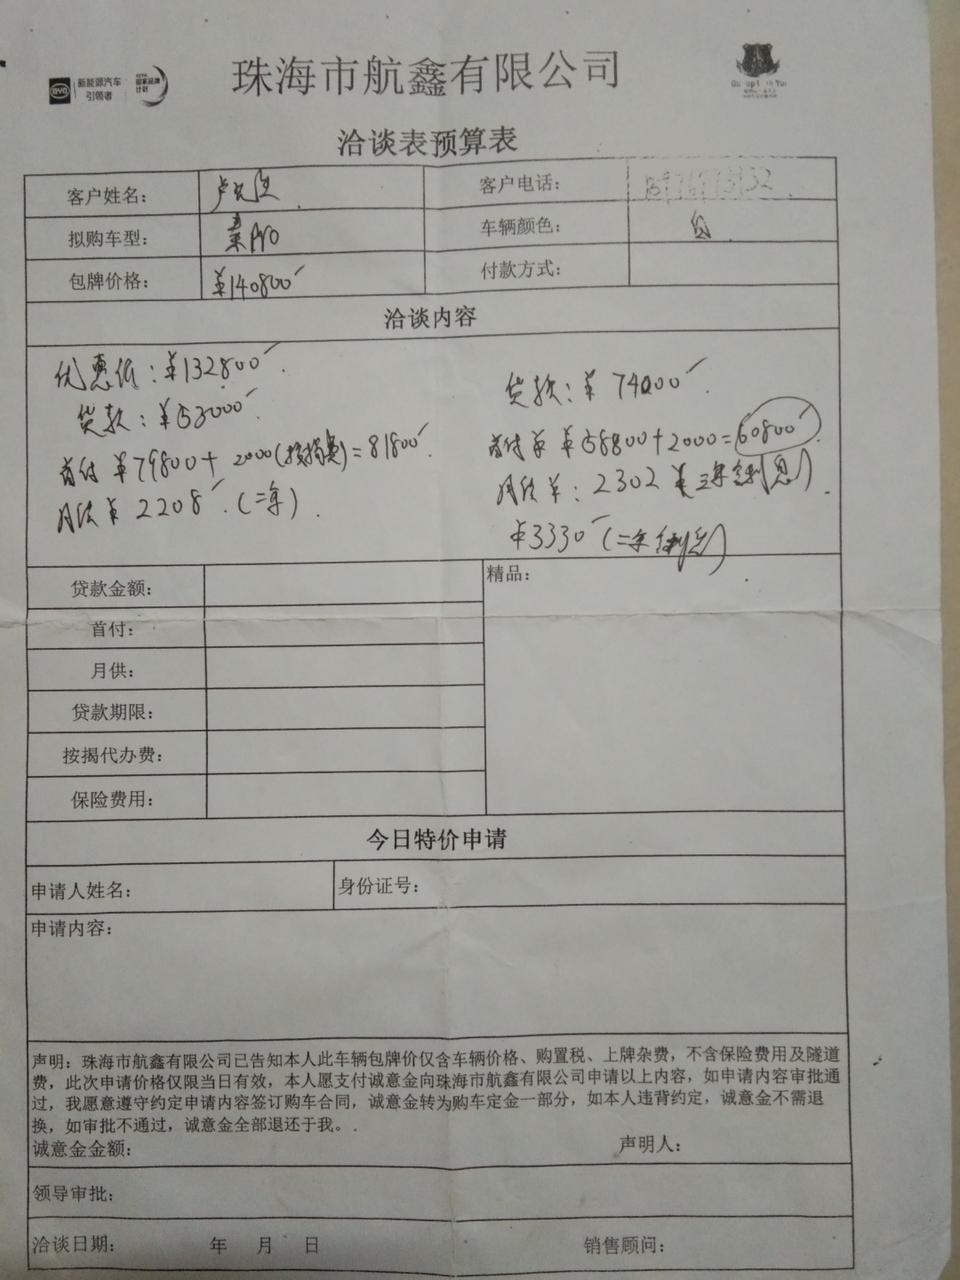 BYD 新能源汽车
引领者
国家品牌
计划
珠海市航鑫有限公司
洽谈表预算表
客户姓名: 卢 客户电话:
拟购车型: 秦pro 车辆颜色: 白
包牌价格: ¥140800 付款方式:
洽谈内容
优惠价: ¥132800
贷款: ¥53000
首付 ¥79800+2000(按揭费)=81800
月供 ¥2208.(二年).
贷款: ¥74000
首付 ¥58800+2000=60800
月供 ¥: 2302 三年 利息)
¥3330(二年 利息)
贷款金额:
首付:
月供:
贷款期限:
按揭代办费:
保险费用:
精品:
今日特价申请
申请人姓名: 身份证号:
申请内容:
声明: 珠海市航鑫有限公司已告知本人此车辆包牌价仅含车辆价格、购置税、上牌杂费，不含保险费用及隧道
费，此次申请价格仅限当日有效，本人愿支付诚意金向珠海市航鑫有限公司申请以上内容，如申请内容审批通
过，我愿意遵守约定申请内容签订购车合同，诚意金转为购车定金一部分，如本人违背约定，诚意金不需退
换，如审批不通过，诚意金全部退还于我。.
诚意金金额: 声明人:
领导审批:
洽谈日期: 年 月 日 销售顾问: